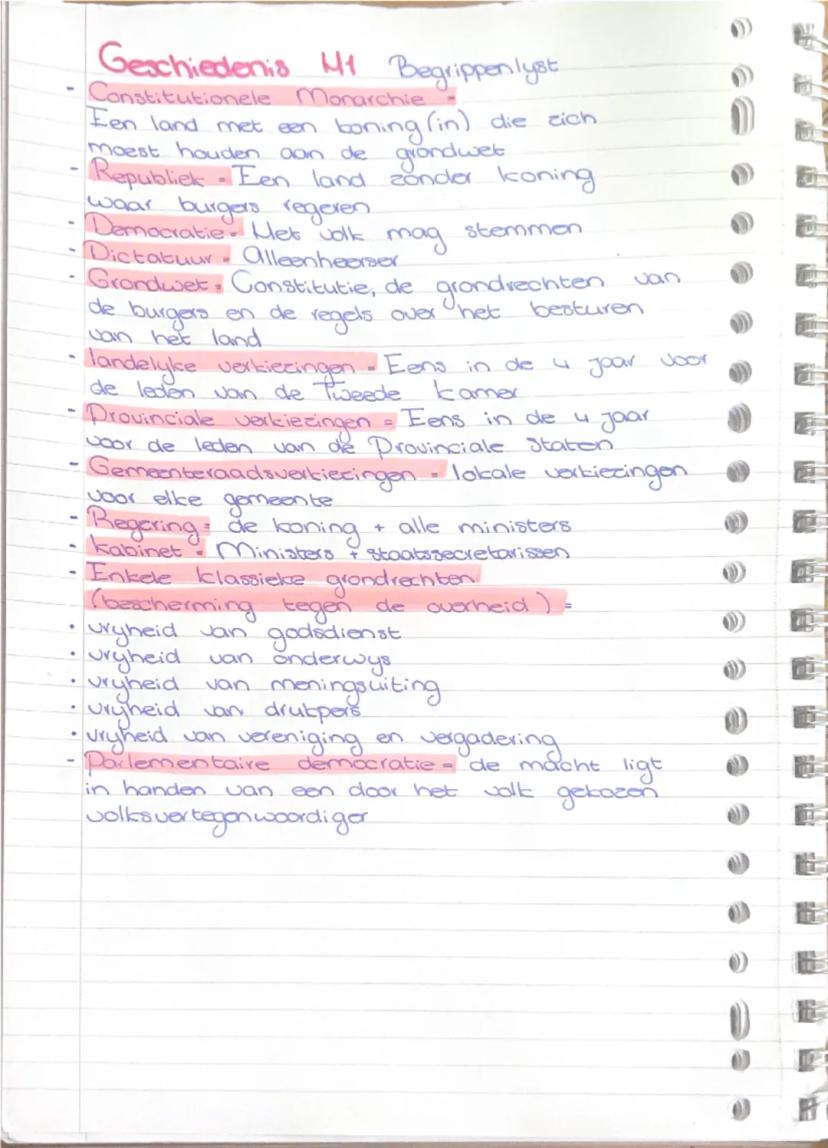 Geschiedenis H1 Begrippenlijst
- Constitutionele Monarchie =
Een land met een koning(in) die zich
moest houden aan de grondwet
- Republiek = Een land zonder koning
waar burgers regeren
- Democratie = Het volk mag stemmen
- Dictatuur = Alleenheerser
- Grondwet = Constitutie, de grondrechten van
de burgers en de regels over het besturen
van het land
- landelijke verkiezingen = Eens in de 4 jaar voor
de leden van de Tweede kamer
- Provinciale verkiezingen = Eens in de 4 jaar
voor de leden van de Provinciale Staten
- Gemeenteraadsverkiezingen = lokale verkiezingen
voor elke gemeente
- Regering = de koning + alle ministers
- kabinet = Ministers + staatssecretarissen
- Enkele klassieke grondrechten
(bescherming tegen de overheid) =
• vrijheid van godsdienst
• vrijheid van onderwijs
• vrijheid van meningsuiting
• vrijheid van drukpers
• vrijheid van vereniging en vergadering
- Parlementaire democratie = de macht ligt
in handen van een door het volk gekozen
volksvertegenwoordiger